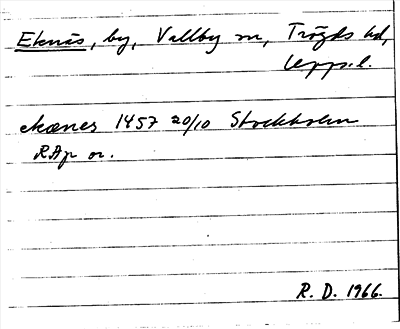 Eknäs, by, Vallby sn, Trögds hd,
Uppl.
ekænes 1457 20/10 Stockholm
RAp or.
R. D. 1966.